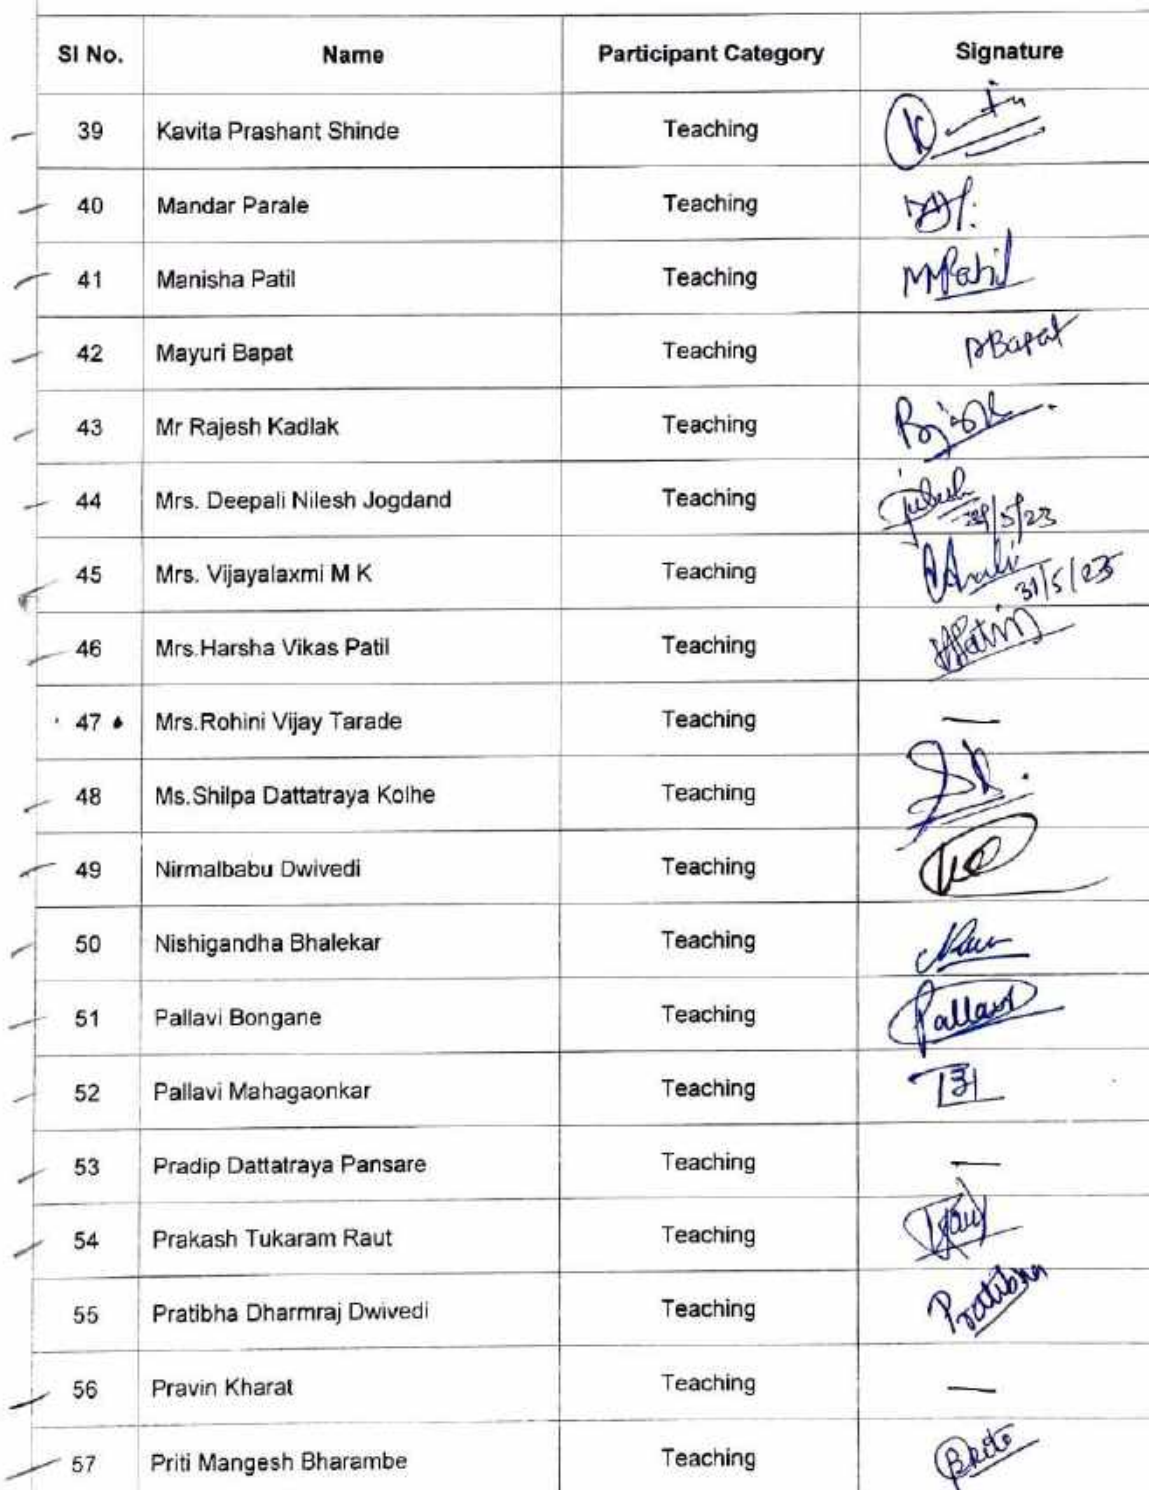 Sl No. Name Participant Category Signature
39 Kavita Prashant Shinde Teaching
40 Mandar Parale Teaching
41 Manisha Patil Teaching MPatil
42 Mayuri Bapat Teaching Bapat
43 Mr Rajesh Kadlak Teaching
44 Mrs. Deepali Nilesh Jogdand Teaching
/5/23
45 Mrs. Vijayalaxmi M K Teaching
31/5/23
46 Mrs.Harsha Vikas Patil Teaching
47 Mrs.Rohini Vijay Tarade Teaching —
48 Ms.Shilpa Dattatraya Kolhe Teaching
49 Nirmalbabu Dwivedi Teaching
50 Nishigandha Bhalekar Teaching
51 Pallavi Bongane Teaching Pallavi
52 Pallavi Mahagaonkar Teaching
53 Pradip Dattatraya Pansare Teaching —
54 Prakash Tukaram Raut Teaching
55 Pratibha Dharmraj Dwivedi Teaching Pratibha
56 Pravin Kharat Teaching —
57 Priti Mangesh Bharambe Teaching